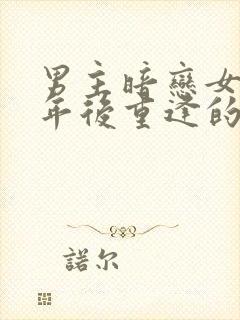 男主暗戀女
年後重逢的
諾尔